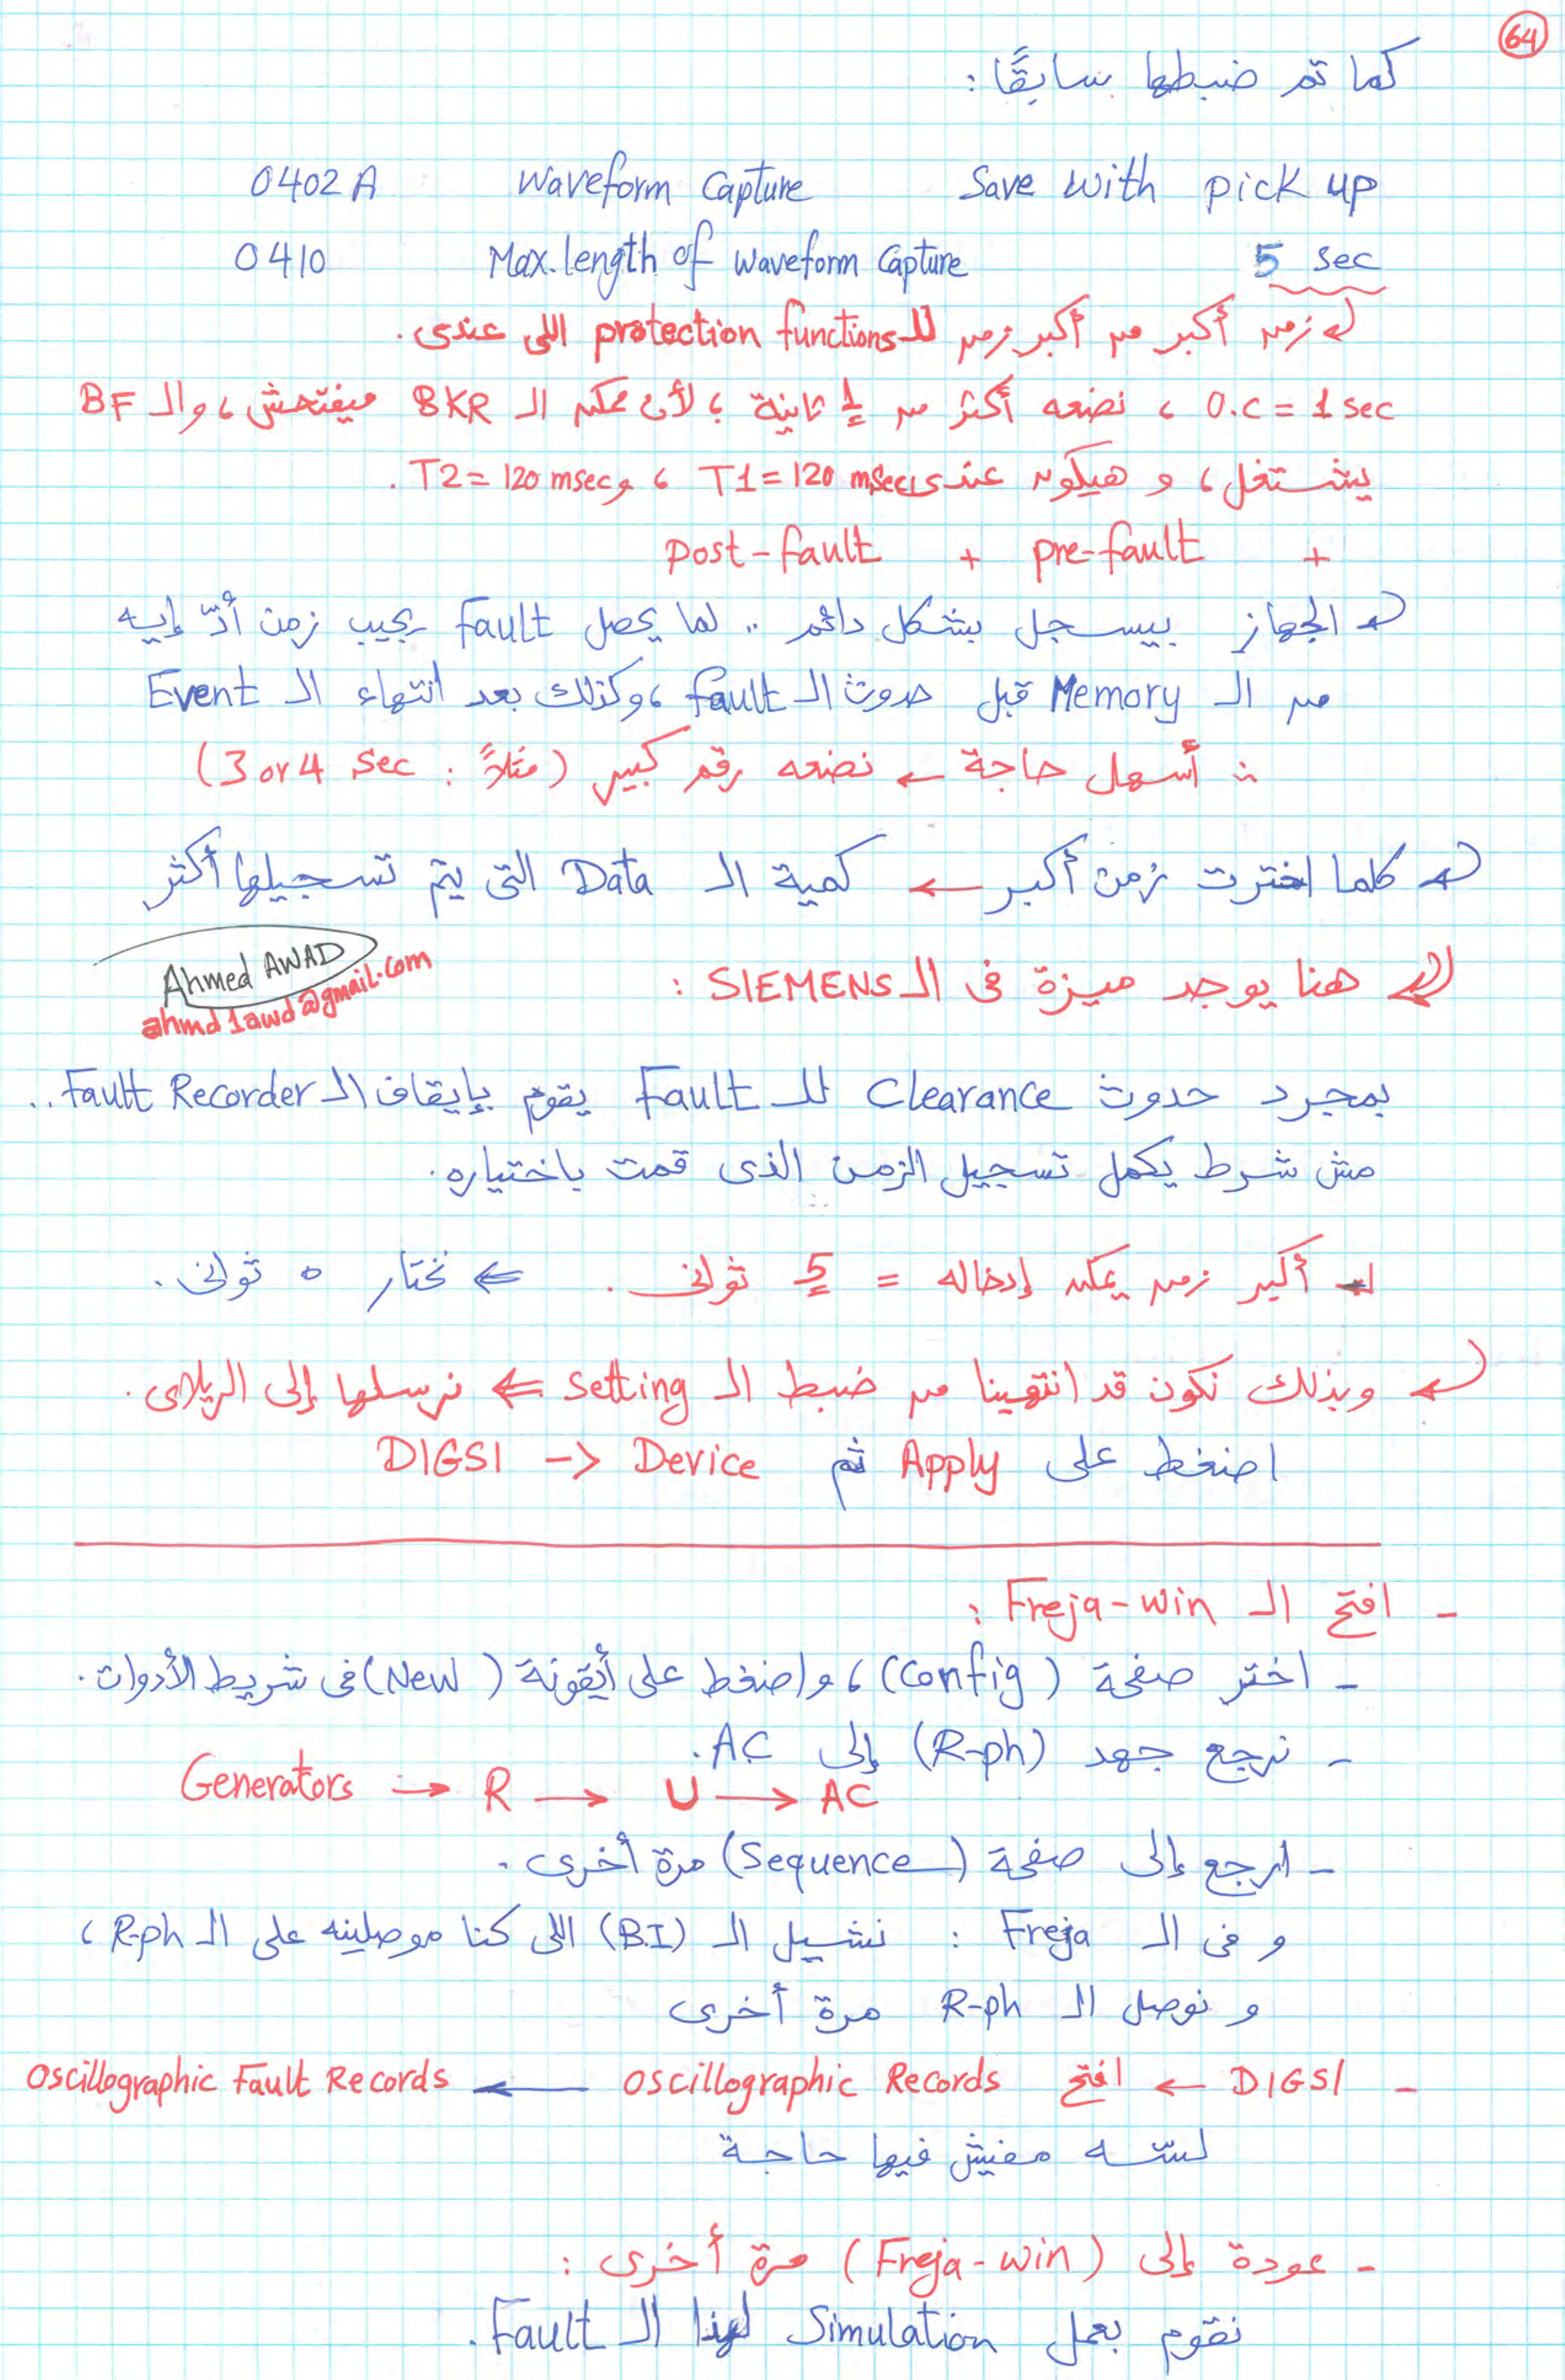 64
كما تم ضبطها سابقًا :
0402 A Waveform Capture Save with pick up
0410 Max. length of waveform Capture 5 sec
زمن أكبر من أكبر زمن للـ protection functions اللى عندى .
O.C = 1 sec ، نضعه أكتر من 1 ثانية ؛ لأن ممكن الـ BKR ميفتحش ، والـ BF
يشتغل ، و هيكون عندى T1 = 120 msec ، و T2 = 120 msec .
+ pre-fault + post-fault
الجهاز بيسجل بشكل دائم .. لما يحصل Fault يجيب زمن أدّ إيه
من الـ Memory قبل حدوث الـ fault ، وكذلك بعد انتهاء الـ Event
∴ أسهل حاجة ← نضعه رقم كبير (مثلاً : 3 or 4 sec)
كلما اخترت زمن أكبر ← كمية الـ Data التى يتم تسجيلها أكثر
Ahmed AWAD
ahmd1awd@gmail.com
هنا يوجد ميزة فى الـ SIEMENS :
بمجرد حدوث Clearance للـ Fault يقوم بإيقاف الـ Fault Recorder ..
مش شرط يكمل تسجيل الزمن الذى قمت باختياره .
أكبر زمن يمكن إدخاله = 5 ثوانى . ⇐ نختار 5 ثوانى .
وبذلك نكون قد انتهينا من ضبط الـ setting ⇐ نرسلها إلى الريلاى .
اضغط على Apply ثم DIGSI -> Device
- افتح الـ Freja-win :
- اختر صفحة (Config) ، واضغط على أيقونة (New) فى شريط الأدوات .
- نرجع جهد (R-ph) إلى AC .
Generators → R → U → AC
- ارجع إلى صفحة (Sequence) مرة أخرى .
و فى الـ Freja : نشيل الـ (B.I) اللى كنا موصلينه على الـ R-ph ،
و نوصل الـ R-ph مرة أخرى
- DIGSI ← افتح oscillographic Records ← Oscillographic Fault Records
لسّه مفيش فيها حاجة
- عودة إلى (Freja-win) مرة أخرى :
نقوم بعمل Simulation لهذا الـ Fault .